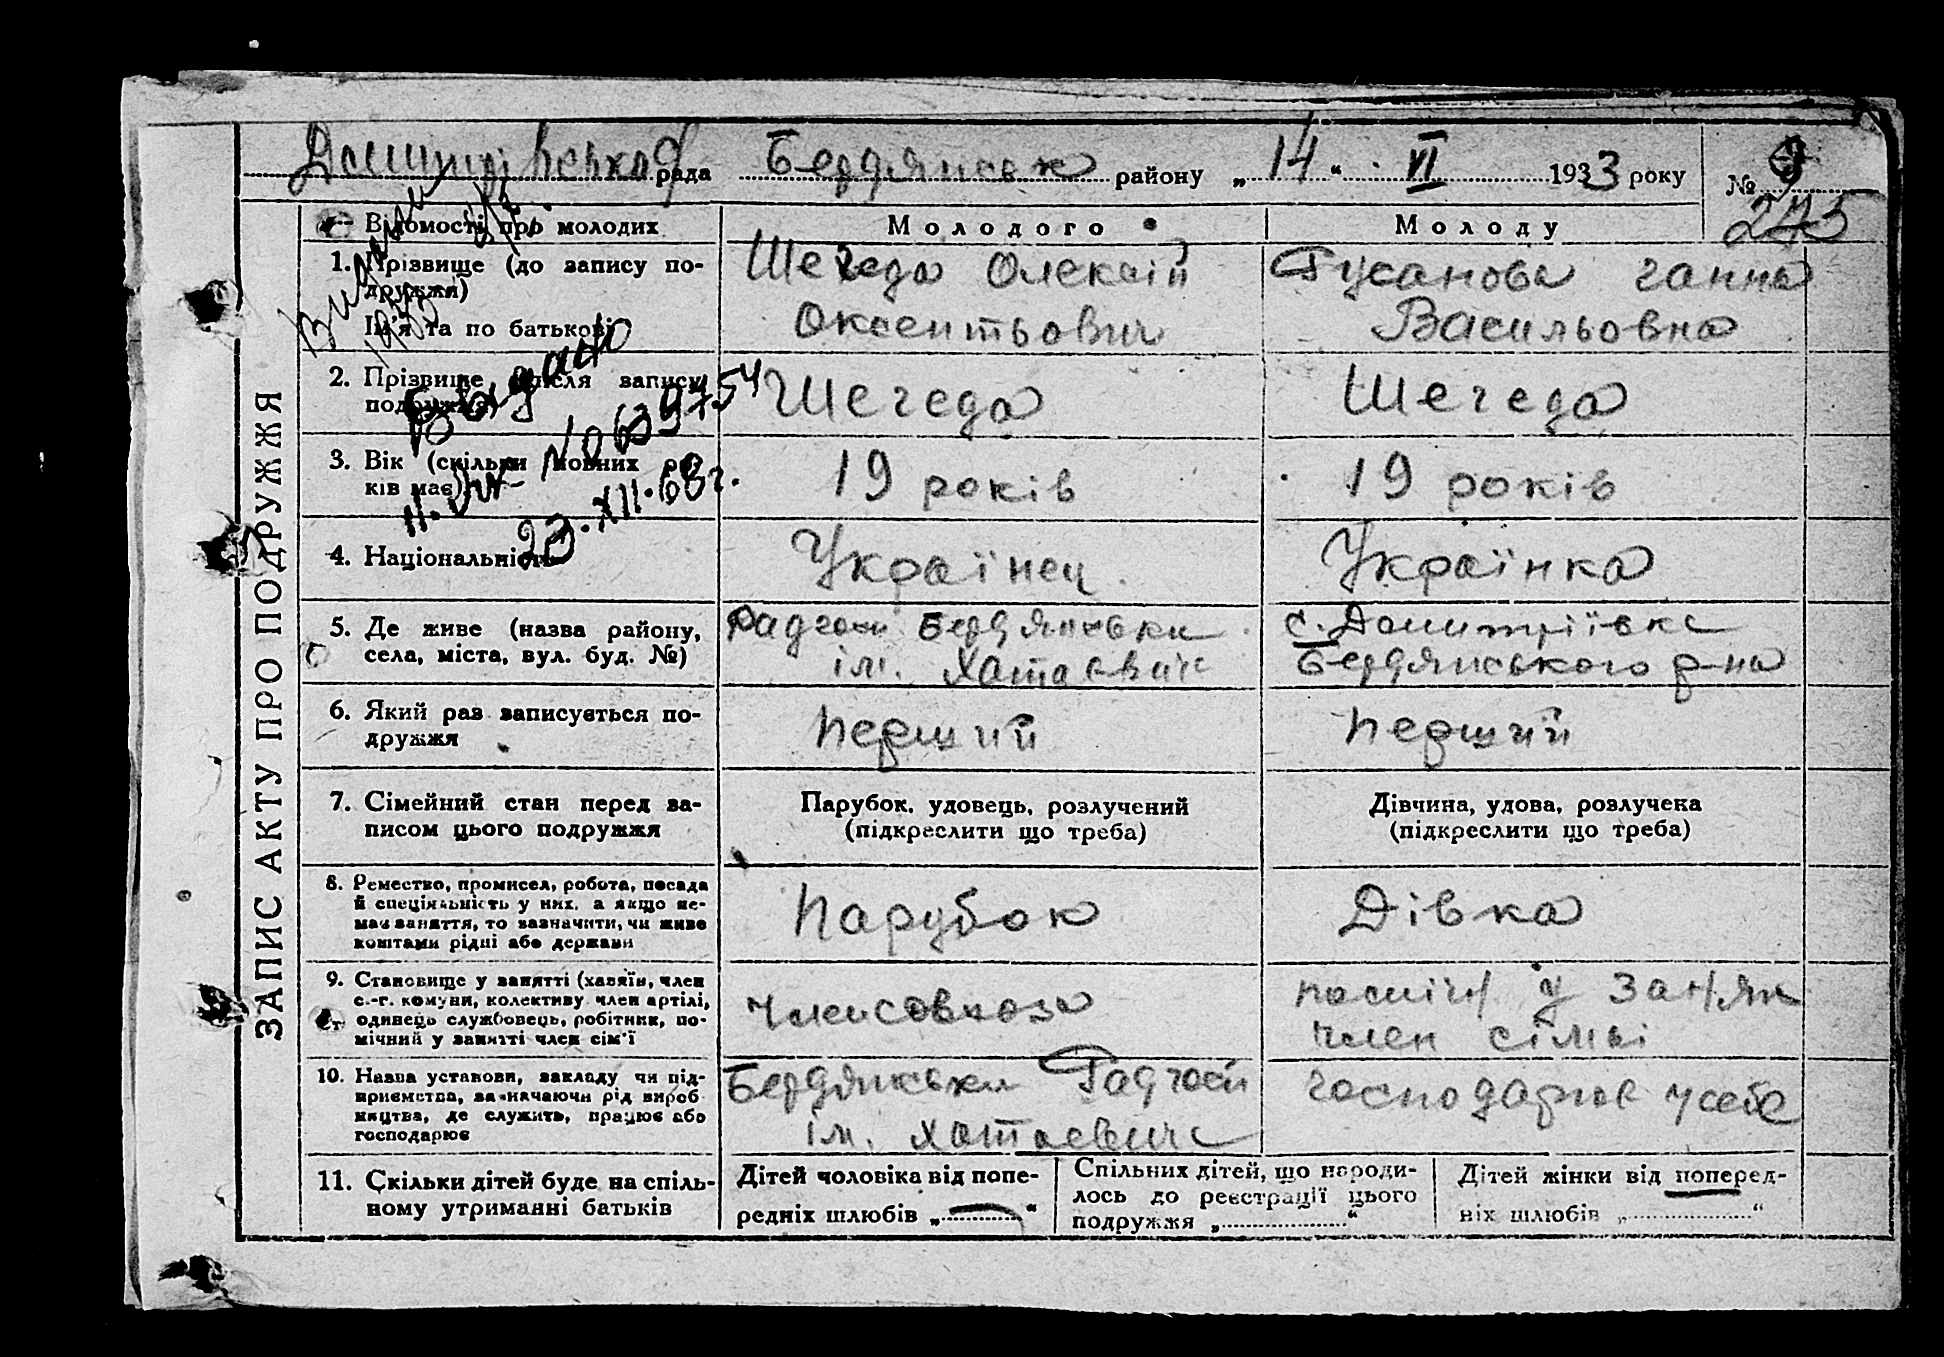 ЗАПИС АКТУ ПРО ПОДРУЖЖЯ
рада Бердянськ району „14“ VI 1933 року № 9
245
Відомості про молодих
Молодого
Молоду
1. Прізвище (до запису подружжя)
Ім'я та по батькові
Шегеда Олексій
Оксентьович
Гусанова Ганна
Васильовна
2. Прізвище після запису
подружжя
Шегеда
Шегеда
3. Вік (скільки повних ро-
ків має)
19 років
19 років
4. Національність
Українец
Українка
Выдано
№ 063975
23.XII.68г.
5. Де живе (назва району,
села, міста, вул. буд. №)
Радгосп
ім. Хатаевич
с. Дмитріївка
Бердянського р-на
6. Який раз записується по-
дружжя
перший
перший
7. Сімейний стан перед за-
писом цього подружжя
Парубок, удовець, розлучений
(підкреслити що треба)
Дівчина, удова, розлучена
(підкреслити що треба)
8. Ремество, промисел, робота, посада
й спеціяльність у них, а якщо не-
має заняття, то зазначити, чи живе
коштами рідні або держави
Парубок
Дівка
9. Становище у занятті (хазяїн, член
с.-г. комуни, колективу член артілі,
одинець службовець, робітник, по-
мічний у занятті член сім'ї
член
член сімьі
10. Назва установи, закладу чи під-
приємства, зазначаючи рід вироб
ництва, де служить, працює або
господарює
Бердянський Радгосп
ім. Хатаевич
господарює у себе
11. Скільки дітей буде на спіль-
ному утриманні батьків
Дітей чоловіка від попе-
редніх шлюбів „ “
Спільних дітей, що народи-
лось до реєстрації цього
подружжя „ “
Дітей жінки від поперед-
ніх шлюбів „ “